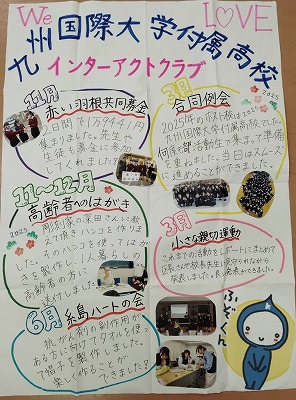 We LOVE
九州国際大学付属高校
インターアクトクラブ
11月
赤い羽根共同募金
2日間で1万9441円
集まりました。先生や
生徒も募金に参加
してくれました
2月
合同例会
2025
2025年のホスト校は
九州国際大学付属高校でした。
何度も部活動生で集まって準備
を重ねました。当日はスムーズ
に
ができました。
11〜12月
高齢者へのはがき
2025
彫刻家の深田さんに教
えて頂き、ハンコを作りま
した。そのハンコを使ってはが
きを製作し、1人暮らしの
高齢者の方に
送付しました
3月
小さな親切運動
これまでの活動をレポートにまとめて
区長さんや校長先生に見守られながら
発表しました。良い発表ができました。
6月
糸島ハートの会
抗がん剤の副作用が
ある方に向けてタオルを使っ
て帽子を製作しました。
楽しく作ることが
できました!
ふどくん